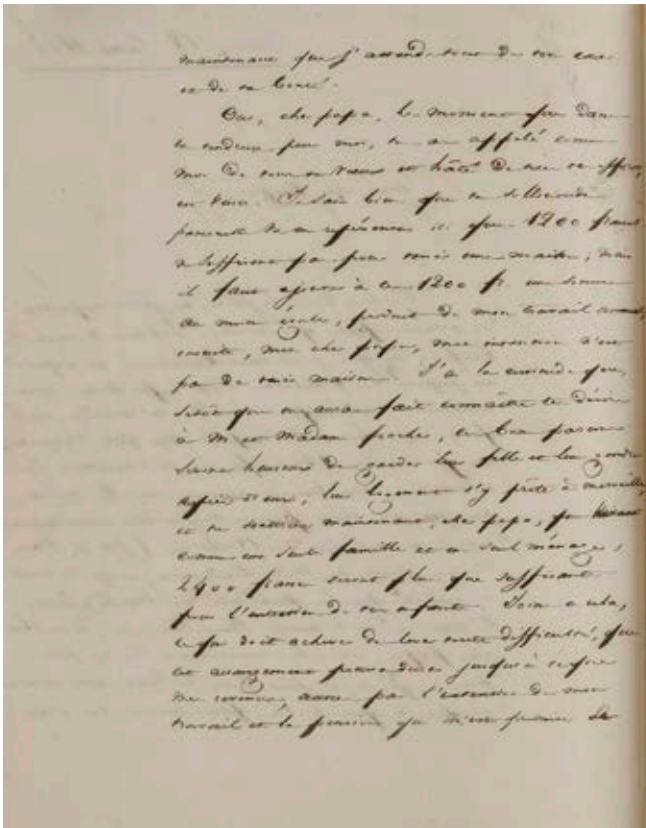 maintenant que j'attends tout de ton cœur
et de ta bonté.
Oui, cher papa, le moment que dans
ta tendresse pour moi, tu as appelé comme
moi de tous tes vœux est hâté de
Je sais bien que ta sollicitude
paternelle et que 1200 francs
ne suffisent pas pour tenir une maison; mais
il faut ajouter à ces 1200 fr. une somme
au moins égale, produit de mon travail annuel,
ensuite, mon cher papa, mon intention n'est
pas de tenir maison. J'ai la certitude que,
sitôt que tu auras fait connaître ce désir
à M et Madame ces bons parents
seront heureux de garder leur fille et leur gendre
auprès d'eux, leur logement s'y prête à merveille,
et tu maintenant, cher papa, que vivant
comme une seule famille et un seul ménage,
2400 francs seront plus que suffisants
pour l'entretien de tes enfants. Joins à cela,
ce qui doit achever de lever toute difficulté, que
cet arrangement peut durer jusqu'à ce que
mes revenus, accrus par l'extension de mon
travail et la pension qui m'est fournie de